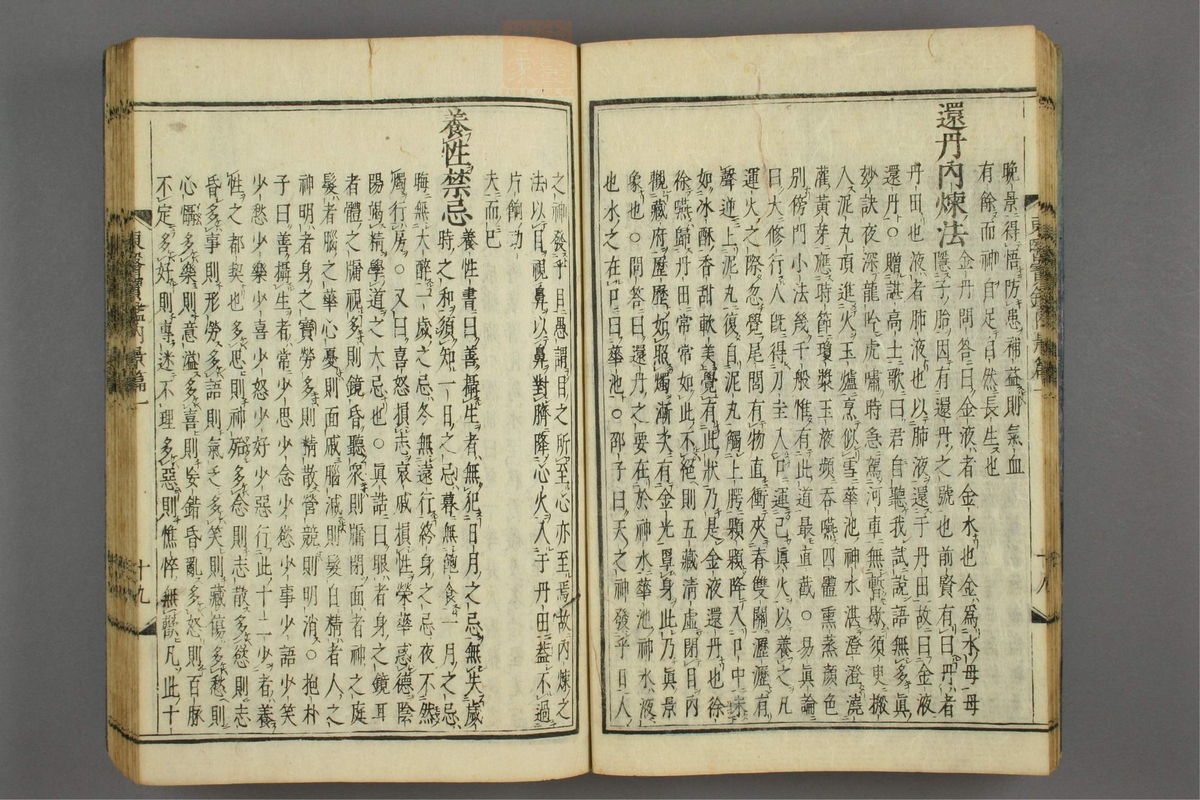 晩景得悟防患補益則氣血
有餘而神自足自然長生也
還丹內煉法
金丹問答曰金液者金水也金爲水母母
隱子胎因有還丹之號也前賢有曰丹者
丹田也液者肺液也以肺液還于丹田故曰金液
還丹○贈諶高士歌曰君自聽我試說語無多眞
妙訣夜深龍吟虎嘯時急駕河車無暫歇須臾搬
入泥丸頂進火玉爐烹似雪華池神水湛澄澄澆
灌黃芽應時節瓊漿玉液頻吞嚥四體熏蒸顏色
別傍門小法幾千般惟有此道最直截○易眞論
曰大修行人旣得刀圭入口運己眞火以養之凡
運火之際忽覺尾閭有物直衝夾脊雙關瀝瀝有
聲逆上泥丸復自泥丸觸上腭顆顆降入口中味
如冰酥香甜軟美覺有此狀乃是金液還丹也徐
徐嚥歸丹田常常如此不絕則五藏淸虛閉目內
觀藏府歷歷如照燭漸次有金光罩身此乃眞景
象也○問答曰還丹之要在於神水華池神水液
也水之在口曰華池○邵子曰天之神發乎日人
之神發乎目愚謂目之所至心亦至焉故內煉之
法以目視鼻以鼻對臍降心火入于丹田蓋不過
片餉功
夫而已
養性禁忌
養性書曰善攝生者無犯日月之忌無失歲
時之和須知一日之忌暮無飽食一月之忌
晦無大醉一歲之忌冬無遠行終身之忌夜不然
燭行房○又曰喜怒損志哀慼損性榮華惑德陰
陽竭精學道之大忌也○眞誥曰眼者身之鏡耳
者體之牖視多則鏡昏聽衆則牖閉面者神之庭
髮者腦之華心憂則面慼腦減則髮白精者人之
神明者身之寶勞多則精散營競則明消○抱朴
子曰善攝生者常少思少念少慾少事少語少笑
少愁少樂少喜少怒少好少惡行此十二少者養
性之都契也多思則神殆多念則志散多慾則志
昏多事則形勞多語則氣乏多笑則藏傷多愁則
心懾多樂則意溢多喜則妄錯昏亂多怒則百脉
不定多好則專迷不理多惡則憔悴無懽凡此十
東醫寶鑑內景篇一
十九
東醫寶鑑內景篇
十八